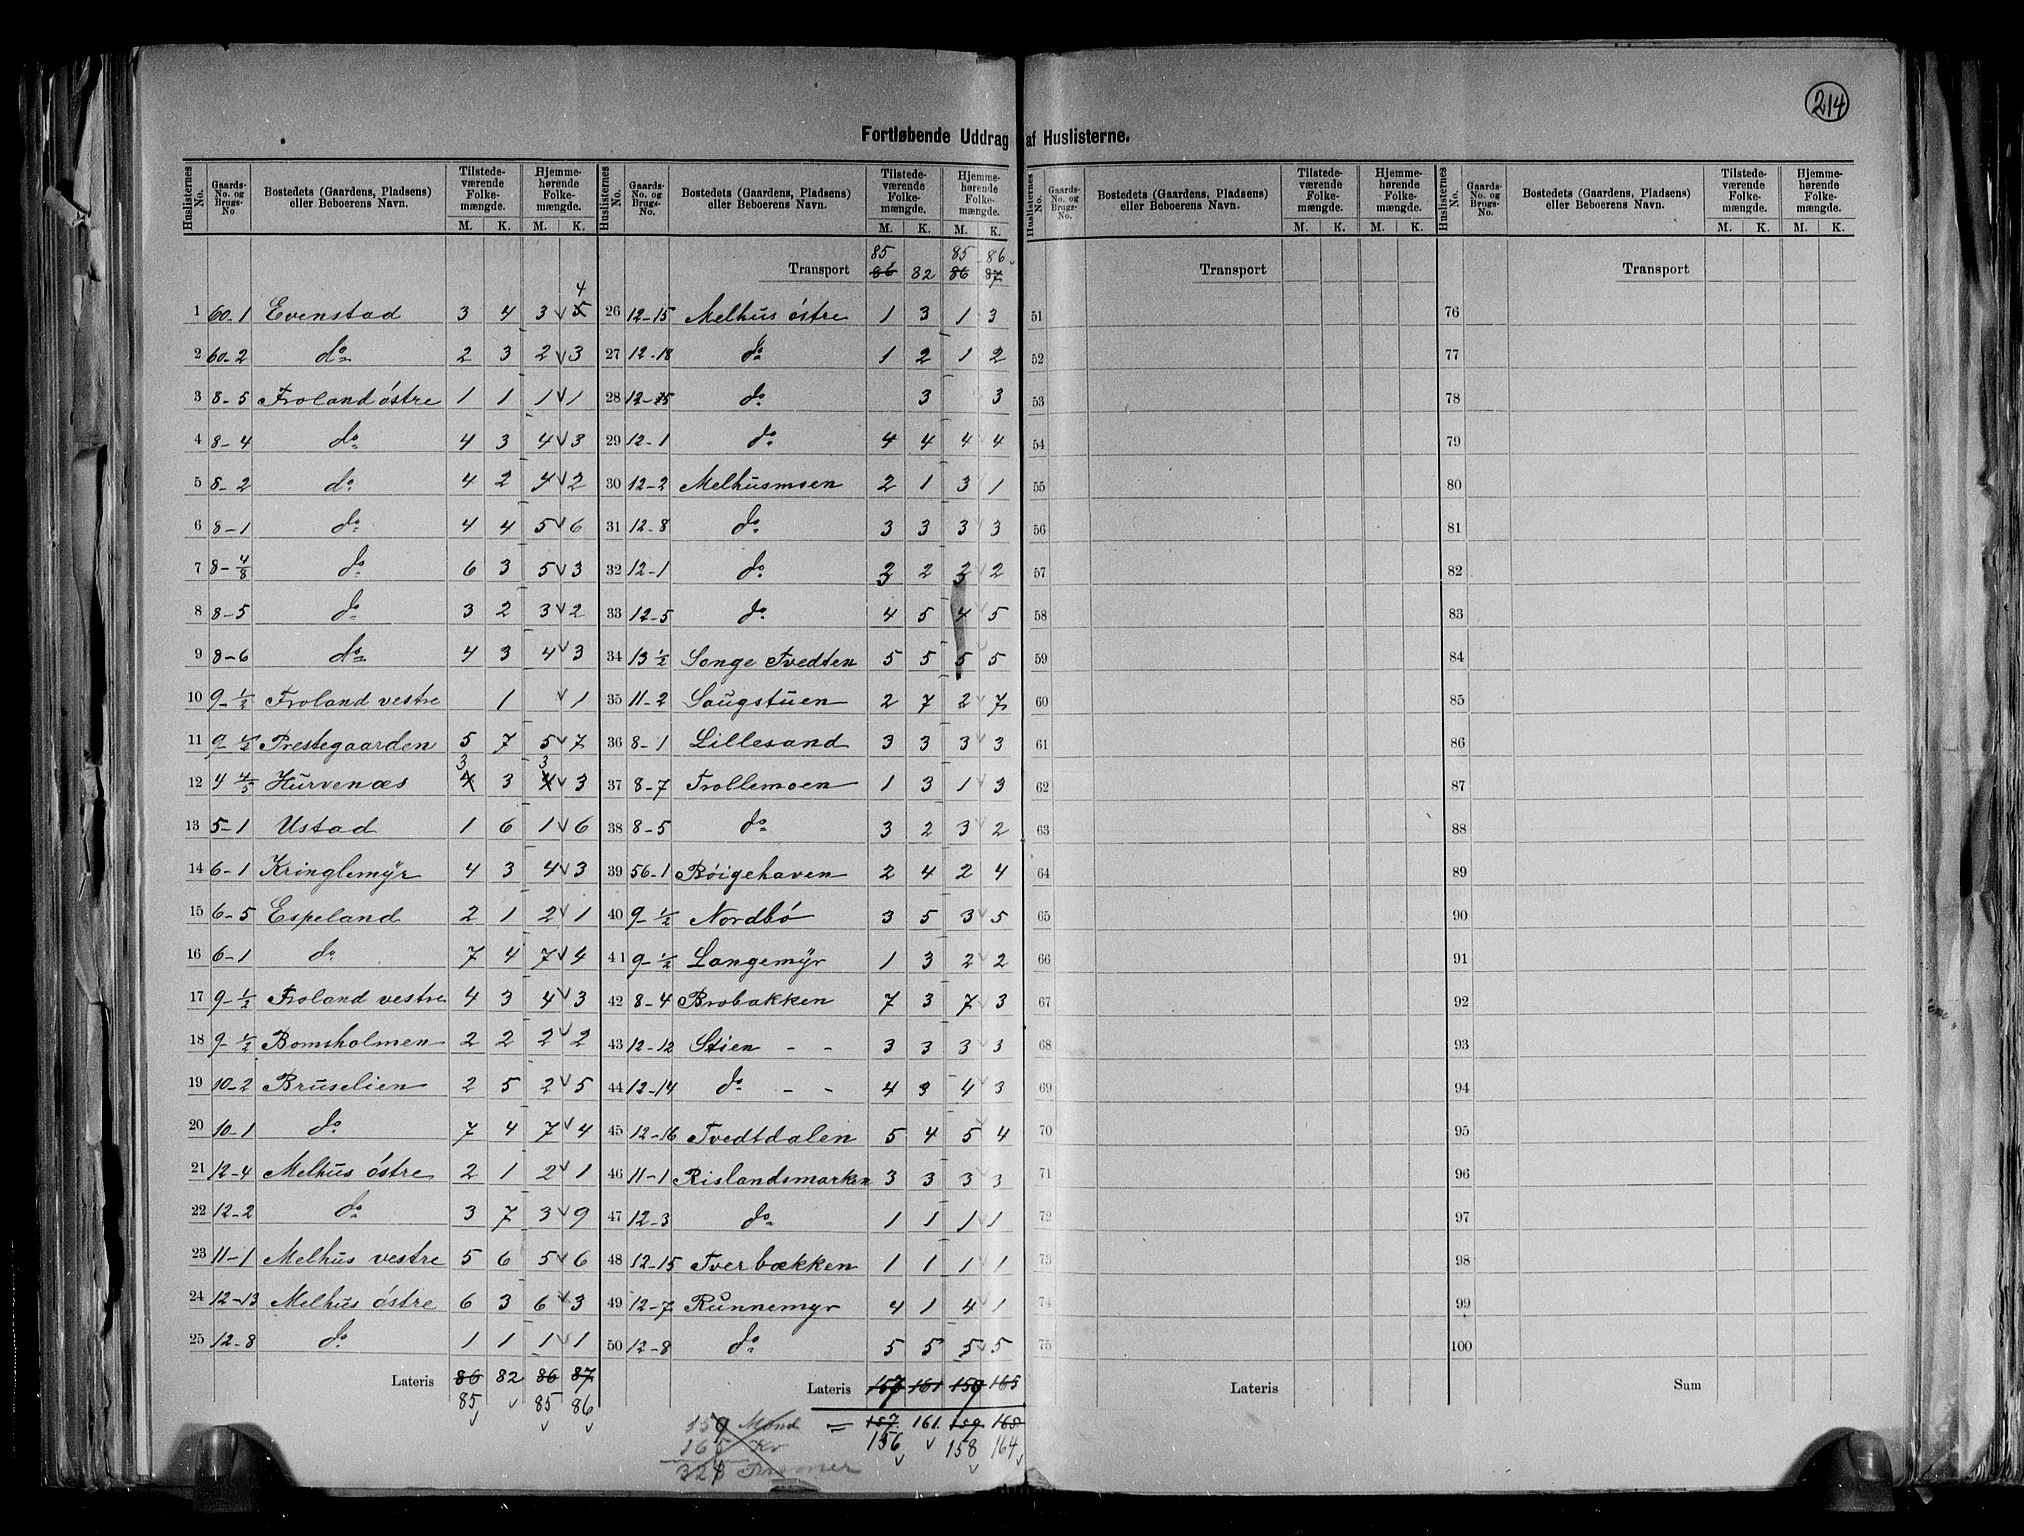 214
Fortløbende Uddrag af Huslisterne.
Huslisternes No. | Gaards-No. og Brugs-No | Bostedets (Gaardens, Pladsens) eller Beboerens Navn. | Tilstedeværende Folkemængde. M. K. | Hjemmehørende Folkemængde. M. K.
1 60-1 Evenstad 3 4 3 5 4
2 60-2 do 2 3 2 3
3 8-5 Froland östre 1 1 1 1
4 8-4 do 4 3 4 3
5 8-2 do 4 2 4 2
6 8-1 do 4 4 5 6
7 8-4/8 do 6 3 5 3
8 8-5 do 3 2 3 2
9 8-6 do 4 3 4 3
10 9-1/2 Froland vestre 1 1
11 9-1/2 Prestegaarden 5 7 5 7
12 4 4/5 Hurvenæs 4 3 3 4 3 3
13 5-1 Ustad 1 6 1 6
14 6-1 Kringlemyr 4 3 4 3
15 6-5 Espeland 2 1 2 1
16 6-1 do 7 4 7 4
17 9-1/2 Froland vestre 4 3 4 3
18 9-1/2 Bomsholmen 2 2 2 2
19 10-2 Bruselien 2 5 2 5
20 10-1 do 7 4 7 4
21 12-4 Melhus östre 2 1 2 1
22 12-2 do 3 7 3 9
23 11-1 Melhus vestre 5 6 5 6
24 12-13 Melhus östre 6 3 6 3
25 12-8 do 1 1 1 1
Lateris 86 82 86 87
85 85 86
Huslisternes No. | Gaards-No. og Brugs-No. | Bostedets (Gaardens, Pladsens) eller Beboerens Navn. | Tilstedeværende Folkemængde. M. K. | Hjemmehørende Folkemængde. M. K.
85 85 86
Transport 86 82 86 87
26 12-15 Melhus östre 1 3 1 3
27 12-18 do 1 2 1 2
28 12-15 do 3 3
29 12-1 do 4 4 4 4
30 12-2 Melhusmoen 2 1 3 1
31 12-8 do 3 3 3 3
32 12-1 do 2 2
33 12-5 do 4 5 4 5
34 13 1/2 Songe Tvedten 5 5 5 5
35 11-2 Laugstuen 2 7 2 7
36 8-1 Lillesand 3 3 3 3
37 8-7 Trollemoen 1 3 1 3
38 8-5 do 3 2 3 2
39 56-1 Böigehaven 2 4 2 4
40 9-1/2 Nordbö 3 5 3 5
41 9-1/2 Langemyr 1 3 2 2
42 8-4 Brobakken 7 3 7 3
43 12-12 Stien - - 3 3 3 3
44 12-14 do - - 4 3 4 3
45 12-16 Tvedtdalen 5 4 5 4
46 11-1 Rislandsmarken 3 3 3 3
47 12-3 do 1 1 1 1
48 12-15 Tverbækken 1 1 1 1
49 12-7 Runnemyr 4 1 4 1
50 12-8 do 5 5 5 5
Lateris 157 161 159 165
= 157 161 159 165
156 158 164
159 Mænd
165 Kv
324 Personer
Huslisternes No. | Gaards-No. og Brugs-No. | Bostedets (Gaardens, Pladsens) eller Beboerens Navn. | Tilstedeværende Folkemængde. M. K. | Hjemmehørende Folkemængde. M. K.
Transport
51
52
53
54
55
56
57
58
59
60
61
62
63
64
65
66
67
68
69
70
71
72
73
74
75
Lateris
Huslisternes No. | Gaards-No. og Brugs-No. | Bostedets (Gaardens, Pladsens) eller Beboerens Navn. | Tilstedeværende Folkemængde. M. K. | Hjemmehørende Folkemængde. M. K.
Transport
76
77
78
79
80
81
82
83
84
85
86
87
88
89
90
91
92
93
94
95
96
97
98
99
100
Sum